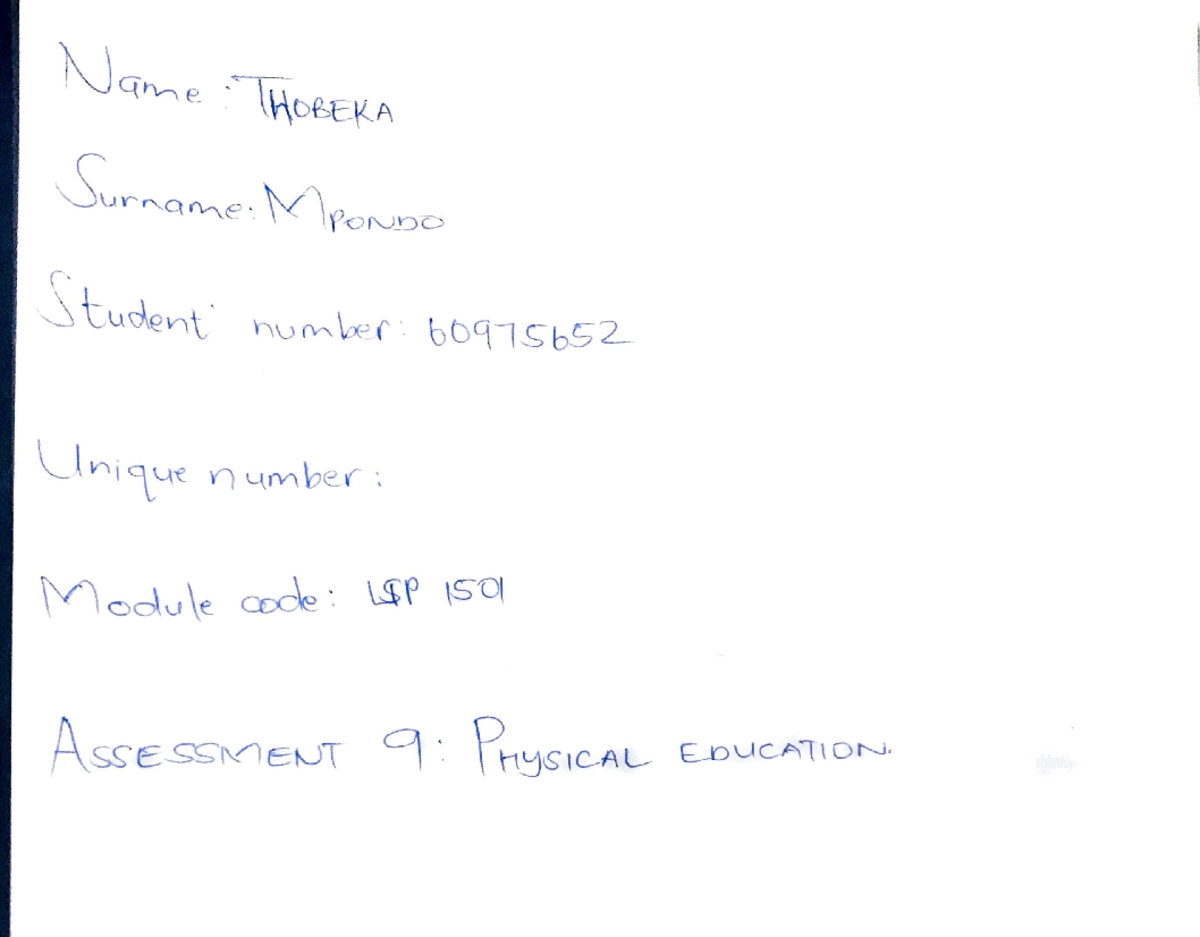 Name: THOBEKA
Surname: MPONDO
Student number: 60975652
Unique number:
Module code: LSP 1501
ASSESSMENT 9: PHYSICAL EDUCATION.